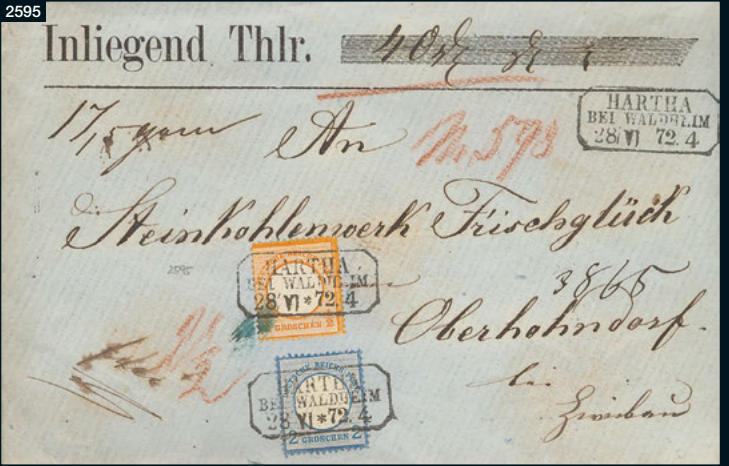 2595
Inliegend Thlr. 40
HARTHA
BEI WALDHEIM
28 VI 72.4
An
No 573
die
Steinkohlenwerk Frischglück
2595
3865
HARTHA
BEI WALDHEIM
28 VI * 72.4
2 GROSCHEN 2
Oberhohndorf.
bei
Zwickau
HARTHA
BEI WALDHEIM
28 VI * 72.4
2 GROSCHEN 2